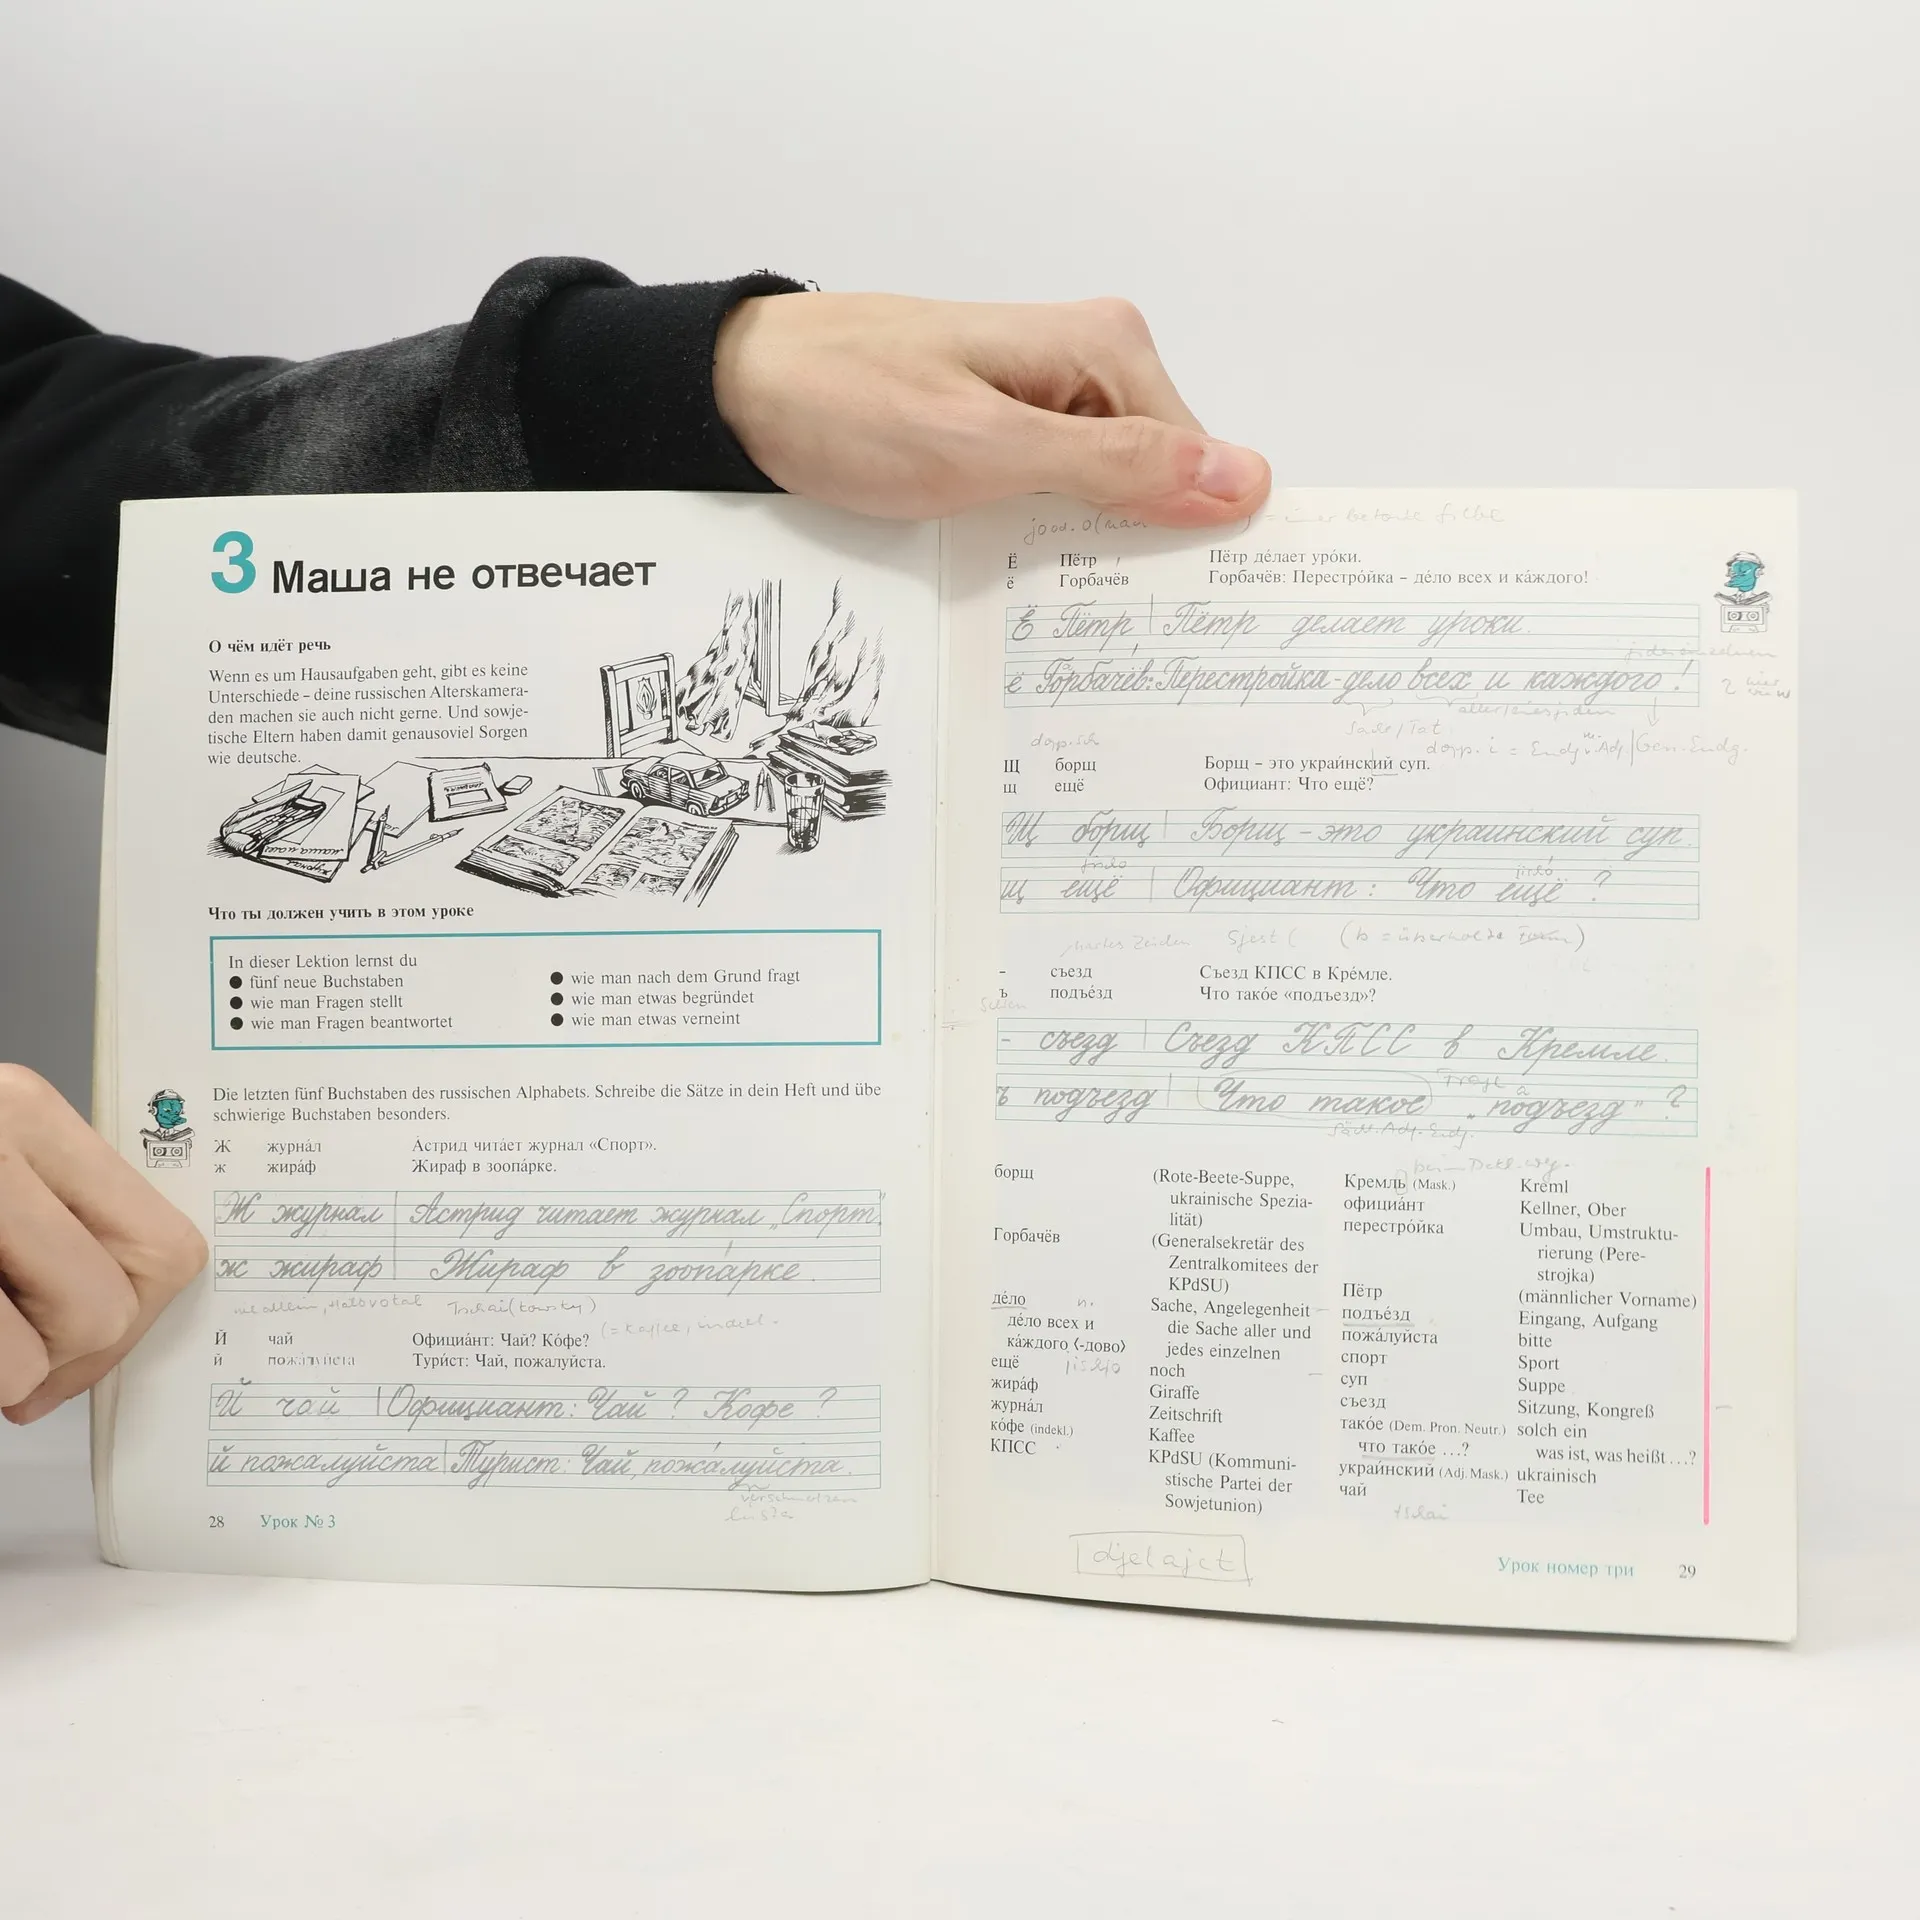 3 Маша не отвечает
О чём идёт речь
Wenn es um Hausaufgaben geht, gibt es keine
Unterschiede – deine russischen Alterskamera-
den machen sie auch nicht gerne. Und sowje-
tische Eltern haben damit genausoviel Sorgen
wie deutsche.
Что ты должен учить в этом уроке
In dieser Lektion lernst du
● fünf neue Buchstaben
● wie man Fragen stellt
● wie man Fragen beantwortet
● wie man nach dem Grund fragt
● wie man etwas begründet
● wie man etwas verneint
Die letzten fünf Buchstaben des russischen Alphabets. Schreibe die Sätze in dein Heft und übe
schwierige Buchstaben besonders.
Ж журна́л А́стрид чита́ет журнал «Спорт».
ж жира́ф Жираф в зоопа́рке.
Ж журнал Астрид читает журнал „Спорт“.
ж жираф Жираф в зоопа́рке.
Tschai(kowsky)
Й чай Официа́нт: Чай? Ко́фе?
(= Kaffee, indekl.
й пожа́луйста Тури́ст: Чай, пожалуйста.
Й чай Официант: Чай? Кофе?
й пожалуйста Турист: Чай, пожа́луйста.
verschmelzen
28 Урок № 3
betonte Silbe
Ё Пётр Пётр де́лает уро́ки.
ё Горбачёв Горбачёв: Перестро́йка – де́ло всех и ка́ждого!
Ё Пётр Пётр делает уроки.
ё Горбачёв: Перестройка – дело всех и каждого!
Sache/Tat
Щ борщ Борщ – это украи́нский суп.
щ ещё Официант: Что ещё?
Щ борщ Борщ – это украинский суп.
щ ещё Официант: Что ещё?
- съезд Съезд КПСС в Кре́мле.
ъ подъе́зд Что тако́е «подъезд»?
- съезд Съезд КПСС в Кремле.
ъ подъезд Что такое „подъезд“?
борщ (Rote-Beete-Suppe,
ukrainische Spezia-
lität)
Горбачёв (Generalsekretär des
Zentralkomitees der
KPdSU)
де́ло n. Sache, Angelegenheit
де́ло всех и die Sache aller und
ка́ждого ⟨-дово⟩ jedes einzelnen
ещё noch
жира́ф Giraffe
журна́л Zeitschrift
ко́фе (indekl.) Kaffee
КПСС KPdSU (Kommuni-
stische Partei der
Sowjetunion)
Кремль (Mask.) Kreml
официа́нт Kellner, Ober
перестро́йка Umbau, Umstruktu-
rierung (Pere-
strojka)
Пётр (männlicher Vorname)
подъе́зд Eingang, Aufgang
пожа́луйста bitte
спорт Sport
суп Suppe
съезд Sitzung, Kongreß
тако́е (Dem. Pron. Neutr.) solch ein
что тако́е ...? was ist, was heißt ...?
украи́нский (Adj. Mask.) ukrainisch
чай Tee
tschai
djelajet
Урок номер три 29